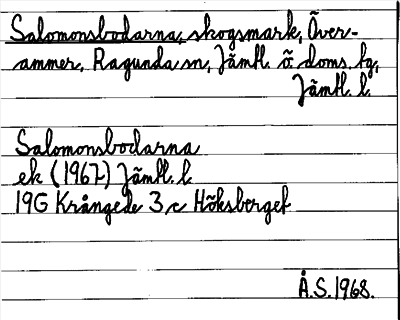 Salomonsbodarna, skogsmark, Över-
ammer, Ragunda sn, Jämtl. ö doms. tg,
Jämtl. l.
Salomonsbodarna
ek (1967) Jämtl. l.
19G Krångede 3, c Höksberget
Å.S. 1968.